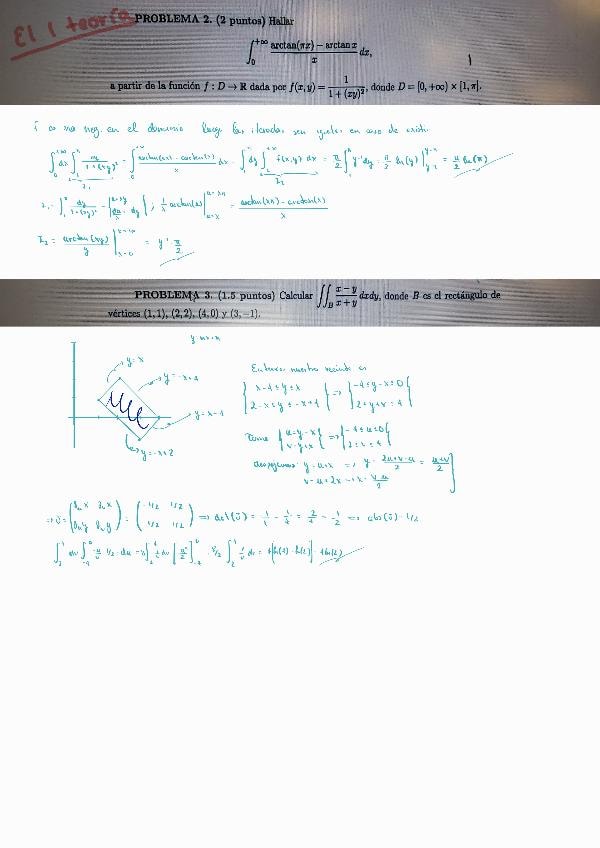 El 1 teoría
PROBLEMA 2. (2 puntos) Hallar
∫_0^{+∞} (arctan(πx) − arctan x)/x dx,
a partir de la función f : D → R dada por f(x, y) = 1/(1 + (xy)²), donde D = [0, +∞) × [1, π].
f es no neg. en el dominio luego las iteradas son iguales en caso de existir
∫_0^{+∞} dx ∫_1^π dy/(1+(xy)²) = ∫_0^{+∞} (arctan(πx) − arctan(x))/x dx = ∫_1^π dy ∫_0^{+∞} f(x,y) dx = π/2 ∫_1^π y⁻¹ dy = π/2 ln(y) |_{y=1}^{y=π} = π/2 ln(π)
I₁ I₂
I₁ = ∫_1^π dy/(1+(xy)²) = | u=xy, du/x = dy | = 1/x arctan(u) |_{u=x}^{u=xπ} = (arctan(xπ) − arctan(x))/x
I₂ = arctan(xy)/y |_{x=0}^{x=+∞} = y⁻¹ π/2
PROBLEMA 3. (1.5 puntos) Calcular ∬_B (x − y)/(x + y) dxdy, donde B es el rectángulo de
vértices (1, 1), (2, 2), (4, 0) y (3, −1).
y=x
y=-x+4
y=x-4
y=-x+2
Entonces nuestro recinto es
{ x-4≤y≤x, 2-x≤y≤-x+4 } ⇒ { -4≤y-x≤0, 2≤y+x≤4 }
Tomo { u=y-x, v=y+x } ⇒ { -4≤u≤0, 2≤v≤4 }
despejamos y=u+x ⇒ y = (2u+v-u)/2 = (u+v)/2
v=u+2x ⇒ x = (v-u)/2
⇒ J = (∂ᵤx ∂ᵥx; ∂ᵤy ∂ᵥy) = (-1/2 1/2; 1/2 1/2) ⇒ det(J) = -1/4 - 1/4 = -2/4 = -1/2 ⇒ abs(J) = 1/2
∫_2^4 dv ∫_{-4}^0 -u/v · 1/2 · du = -1/2 ∫_2^4 1/v dv [u²/2]_{-4}^0 = 8/2 ∫_2^4 1/v dv = 4[ln(4) - ln(2)] = 4ln(2)